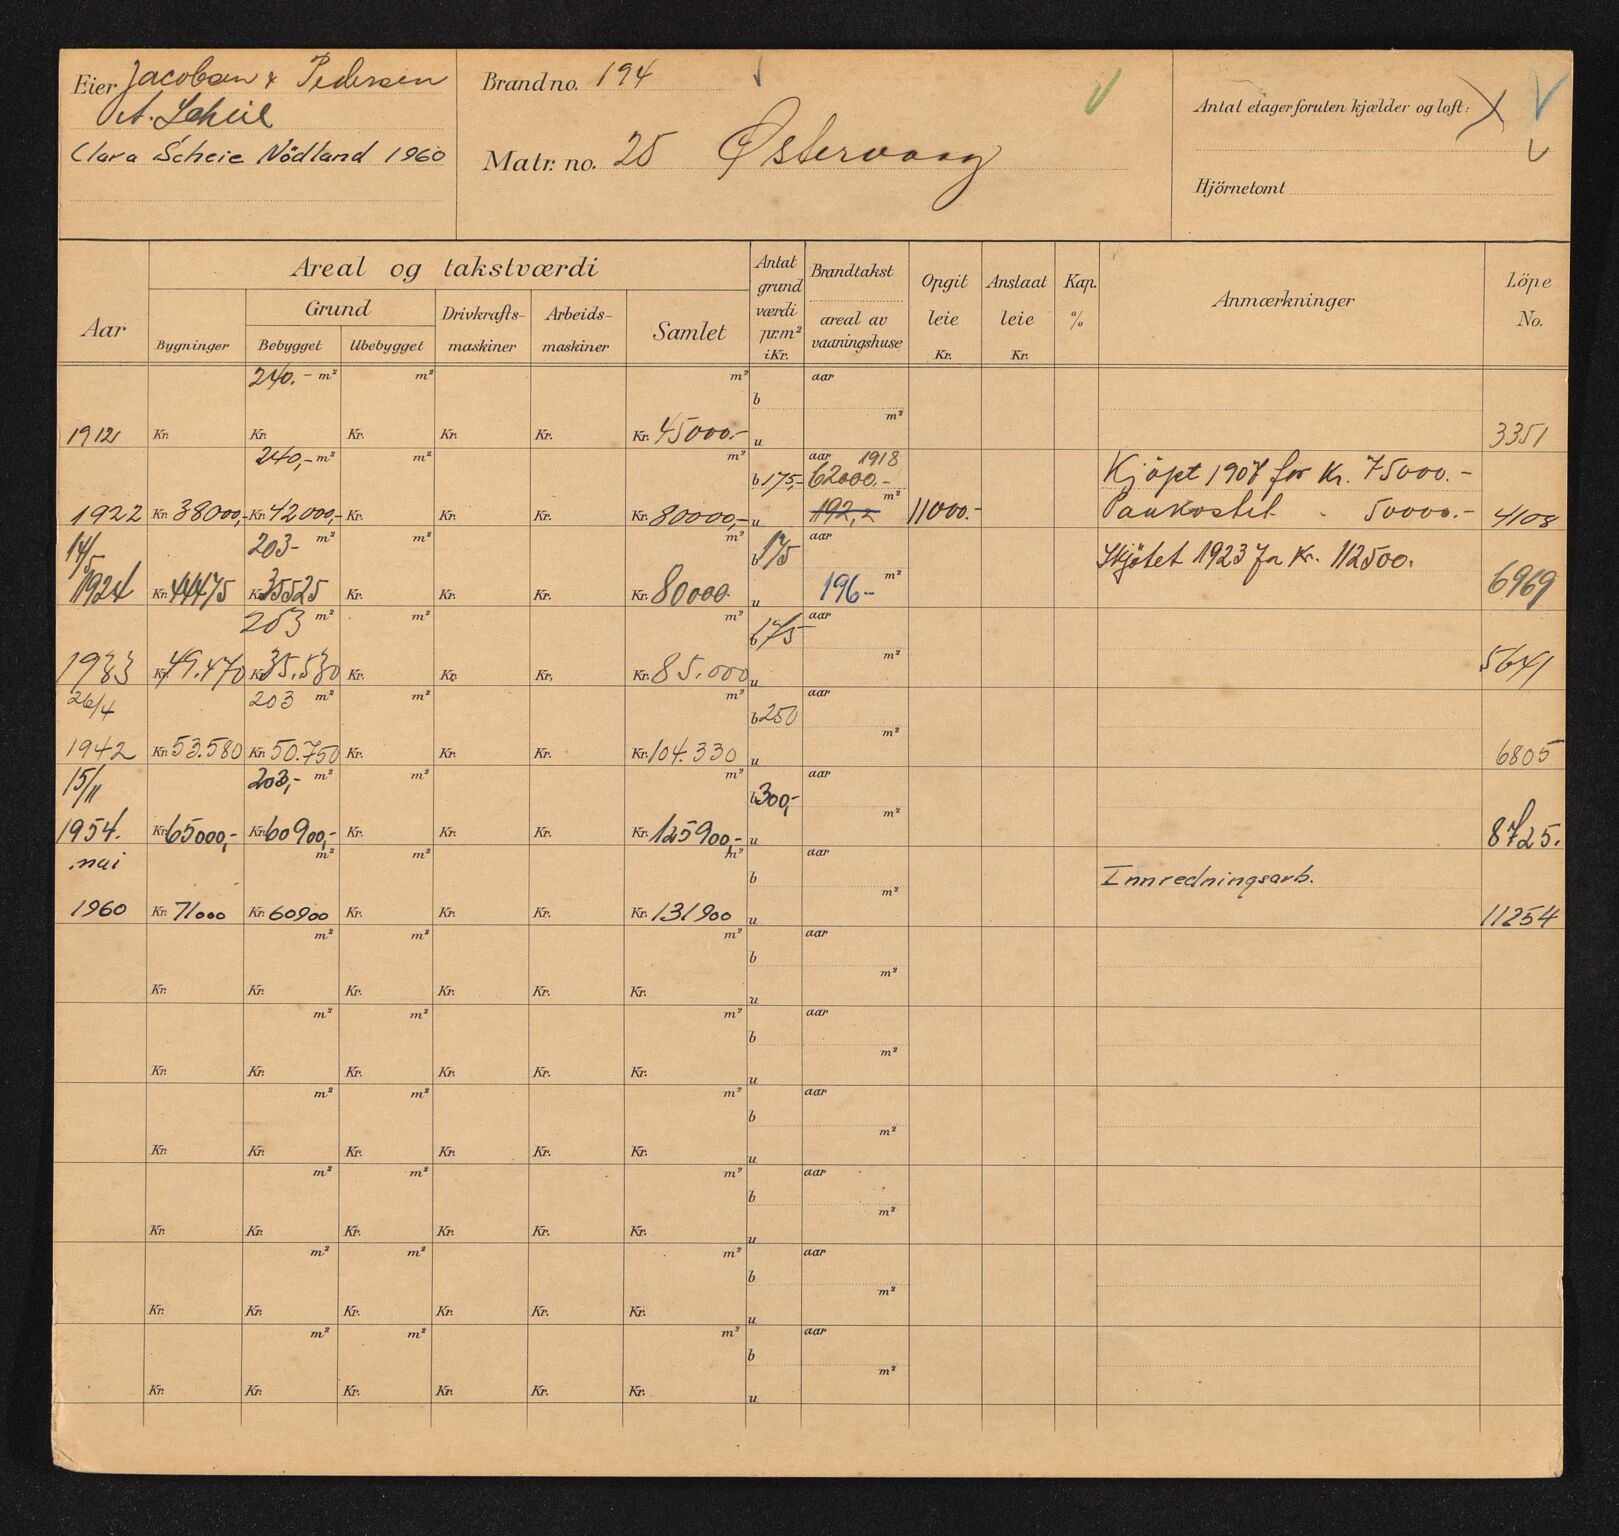 Eier Jacobsen & Pedersen
A. Scheie
Clara Scheie Nödland 1960
Brand no. 194
Matr. no. 25 Østervaag
Antal etager foruten kjælder og loft:
Hjörnetomt
Aar
Areal og takstværdi
Grund
Bygninger
Bebygget
Ubebygget
Drivkrafts-
maskiner
Arbeids-
maskiner
Samlet
Antat
grund
værdi
pr. m²
i Kr.
Brandtakst
areal av
vaaningshuse
Opgit
leie
Kr.
Anslaat
leie
Kr.
Kap.
%
Anmærkninger
Löpe
No.
240.- m² m² m² aar
b m²
1912 Kr. Kr. Kr. Kr. Kr. Kr. 45000.- u 3351
240,- m² m² m² aar 1918
b 175,- 62000.- m² Kjöpt 1907 for Kr. 75000.-
1922 Kr. 38000,- Kr. 42000,- Kr. Kr. Kr. Kr. 80000,- u 192,2 11000.- Paakostet - 50000.- 4108
14/5 203- m² m² m² b 175 aar Skjötet 1923 for Kr. 112500.
1924 Kr. 44475 Kr. 35525 Kr. Kr. Kr. Kr. 80000 u 196- m² 6969
203 m² m² m² b 175 aar
1933 Kr. 49.470 Kr. 35.530 Kr. Kr. Kr. Kr. 85.000 u m² 5641
26/4 203 m² m² m² b 250 aar
1942 Kr. 53.580 Kr. 50.750 Kr. Kr. Kr. Kr. 104.330 u m² 6805
15/11 203,- m² m² m² b 300,- aar
1954. Kr. 65000,- Kr. 60900,- Kr. Kr. Kr. Kr. 125900,- u m² 8725.
mai m² m² m² b aar Innredningsarb.
1960 Kr. 71000 Kr. 60900 Kr. Kr. Kr. Kr. 131900 u m² 11254
m² m² m² b aar
Kr. Kr. Kr. Kr. Kr. Kr. u m²
m² m² m² b aar
Kr. Kr. Kr. Kr. Kr. Kr. u m²
m² m² m² b aar
Kr. Kr. Kr. Kr. Kr. Kr. u m²
m² m² m² b aar
Kr. Kr. Kr. Kr. Kr. Kr. u m²
m² m² m² b aar
Kr. Kr. Kr. Kr. Kr. Kr. u m²
m² m² m² b aar
Kr. Kr. Kr. Kr. Kr. Kr. u m²